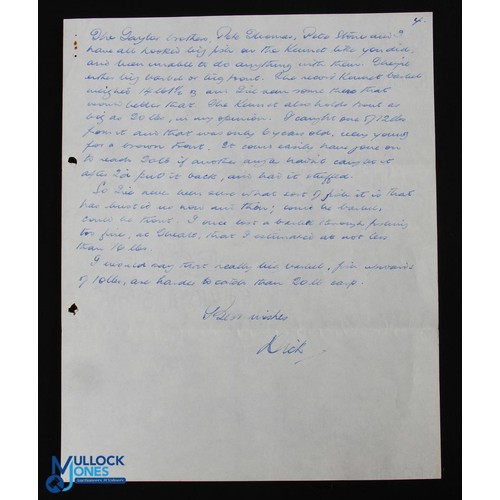 4.
The Gayler brothers, Pete Thomas, Pete Stone and I
have all hooked big fish on the Kennet like you did,
and been unable to do anything with them. They're
either big barbel or big trout. The record Kennet barbel
weighed 14lb and I've seen some there that
would better that. The Kennet also holds trout as
big as 20 lbs, in my opinion. I caught one of 12lbs
from it and that was only 6 years old, very young
for a brown trout. It could easily have gone on
to reach 20lb if another angler hadn't caught it
after I'd put it back, and had it stuffed.
So I've never been sure what sort of fish it is that
has bust us now and then; could be barbel,
could be trout. I once lost a barbel through
too fine, at, that I estimated at not less
than 16 lbs.
I would say that really big barbel, fish upwards
of 10lbs, are harder to catch than 20lb carp.
Best wishes
Dick
MULLOCK
JONES
Auctioneers & Valuers